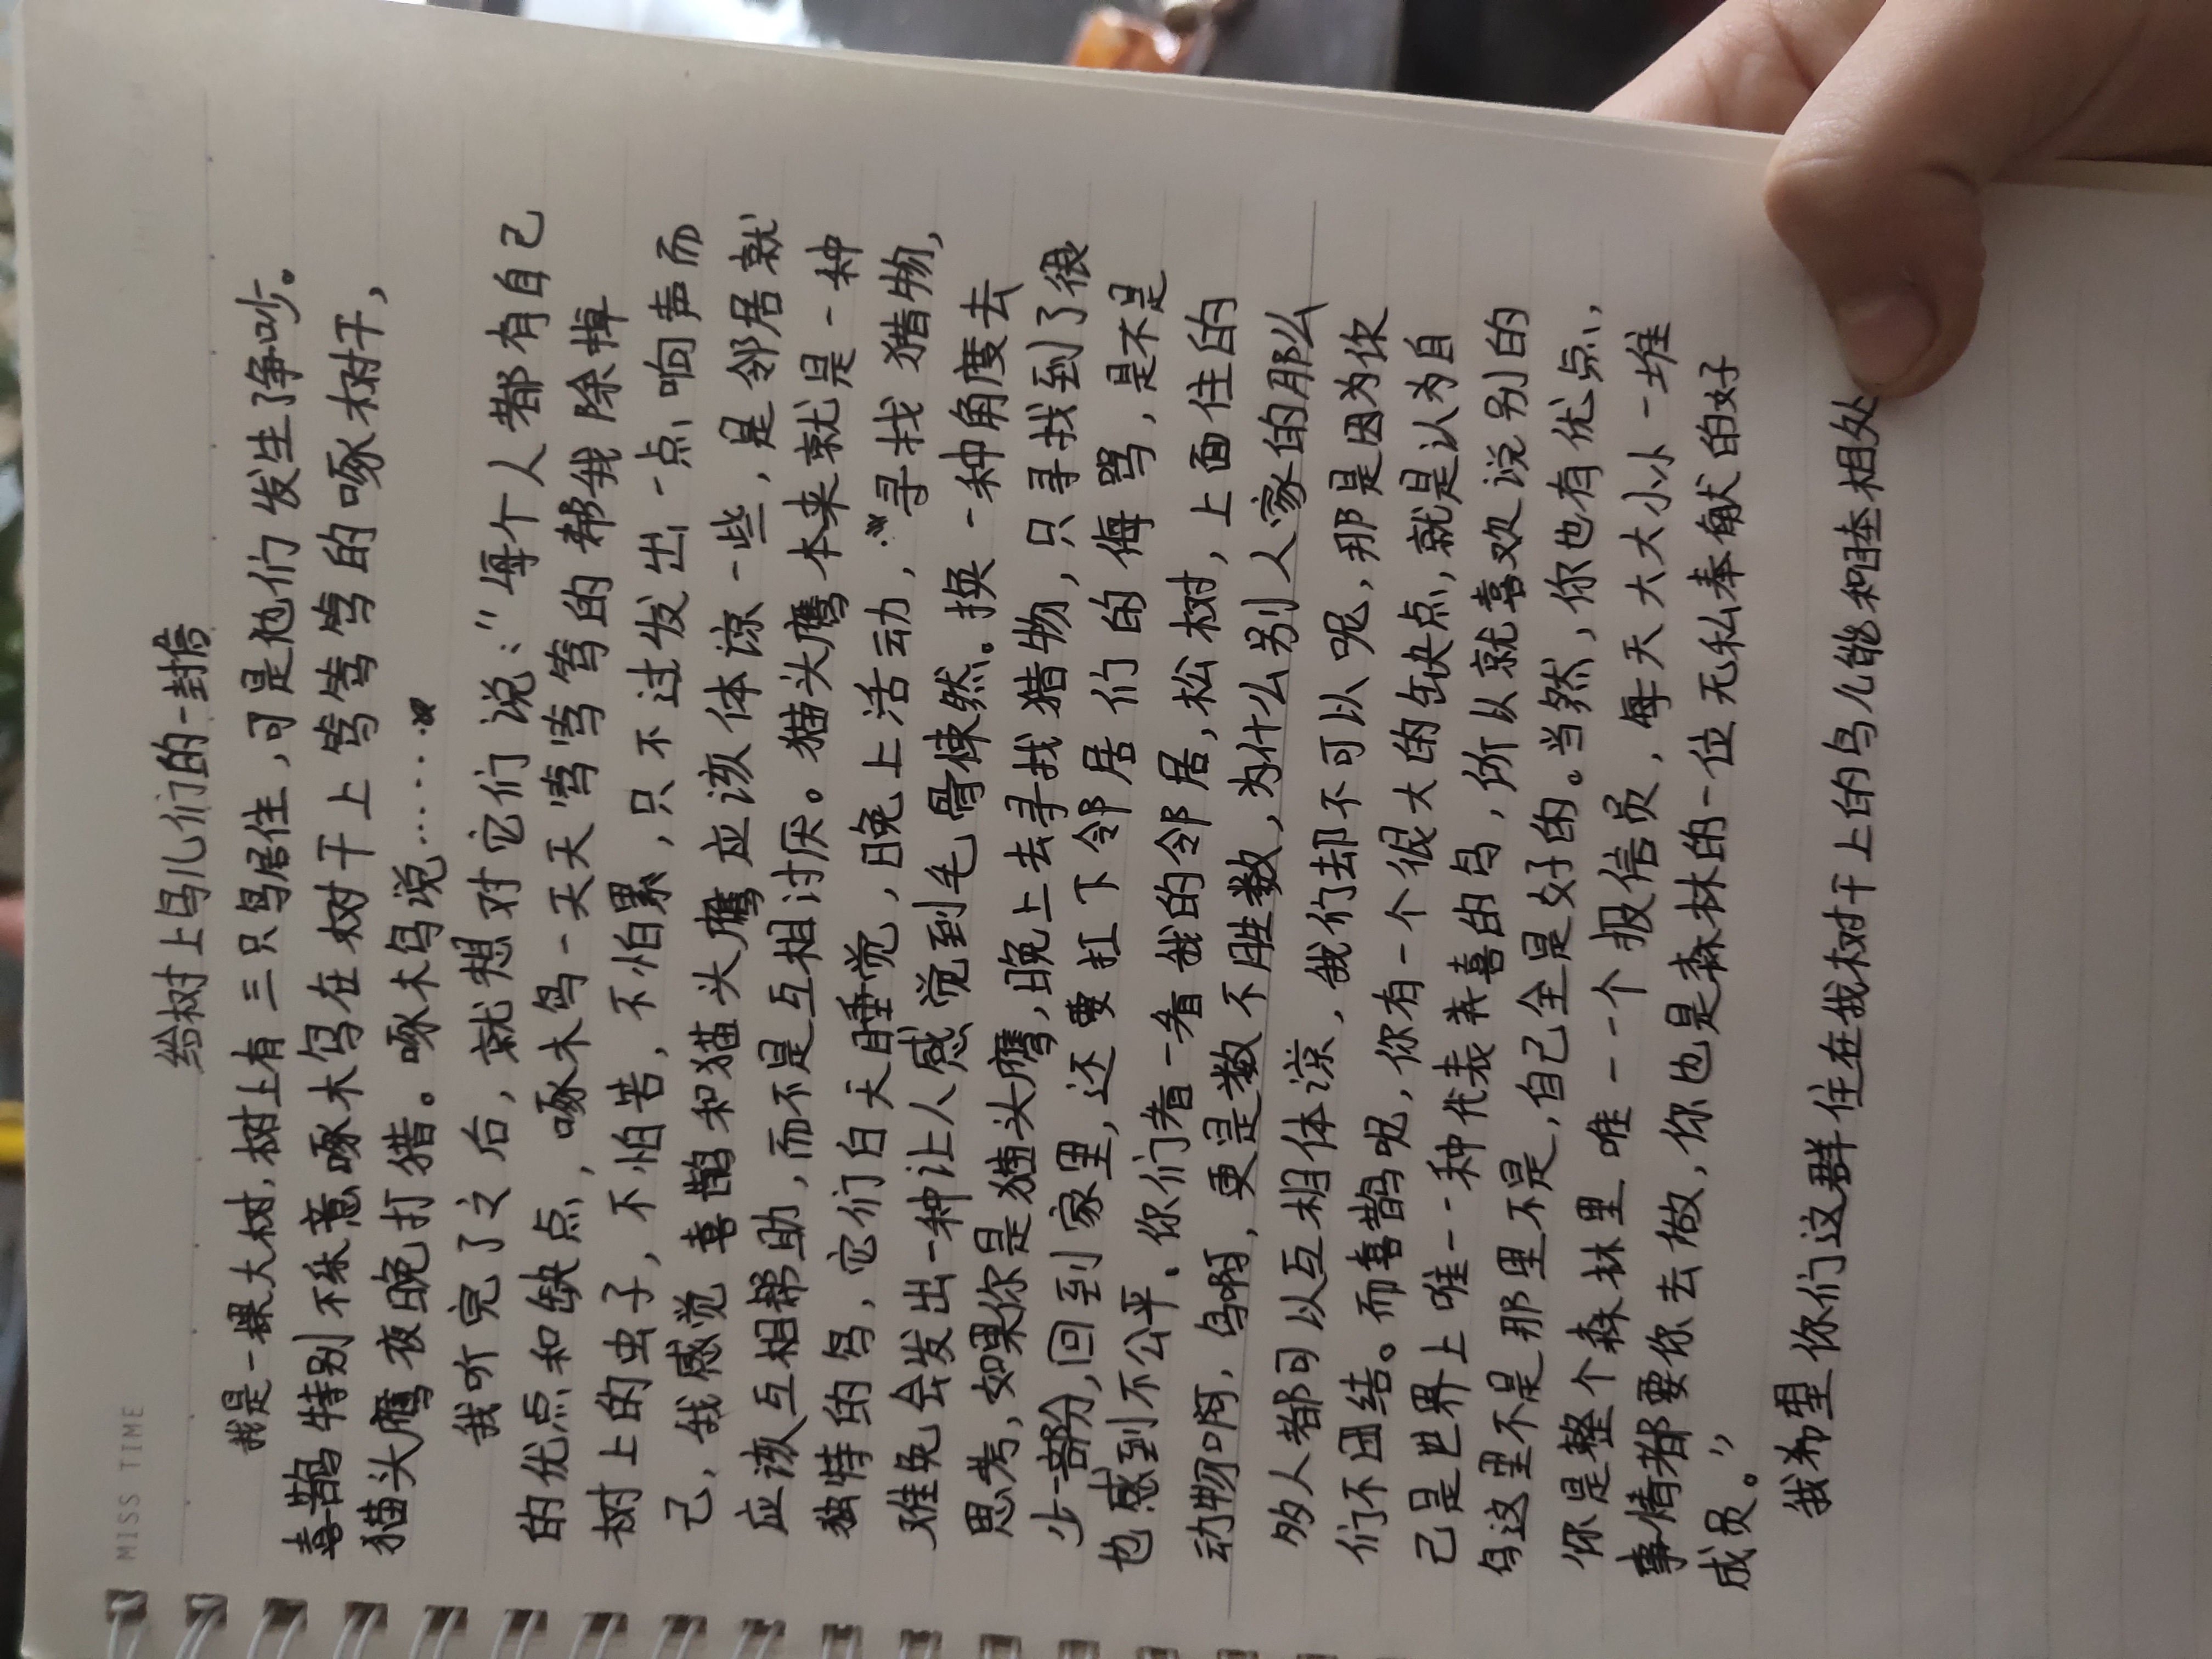 MISS TIME
给树上鸟儿们的一封信
我是一棵大树，树上有三只鸟居住，可是他们发生了争吵。
喜鹊特别不乐意啄木鸟在树干上笃笃笃的啄木树干，
猫头鹰夜晚打猎。啄木鸟说……
我听完了之后，就想对它们说：“每个人都有自己
的优点和缺点，啄木鸟一天天笃笃笃的帮我除掉
树上的虫子，不怕苦，不怕累，只不过发出一点响声而
己，我感觉喜鹊和猫头鹰应该体谅一些，是邻居就
应该互相帮助，而不是互相讨厌。猫头鹰本来就是一种
独特的鸟，它们白天睡觉，晚上活动，寻找猎物，
难免会发出一种让人感觉到毛骨悚然。换一种角度去
思考，如果你是猫头鹰，晚上去寻找猎物，只寻找到了很
少一部分，回到家里，还要扛下邻居们的侮骂，是不是
也感到不公平。你们看一看我的邻居，松树，上面住的
动物啊，鸟啊，更是数不胜数，为什么别人家的那么
多人都可以互相体谅，我们去却不可以呢，那是因为你
们不团结。而喜鹊呢，你有一个很大的缺点，就是认为自
己是世界上唯一一种代表喜的鸟，所以就喜欢说别的
鸟这里不是那里不是，自己全是好的。当然，你也有优点，
你是整个森林里唯一一个报信员，每天大大小小一堆
事情都要你去做，你也是森林的一位无私奉献的好
成员。”
我希望你们这群住在我树干上的鸟儿能和睦相处